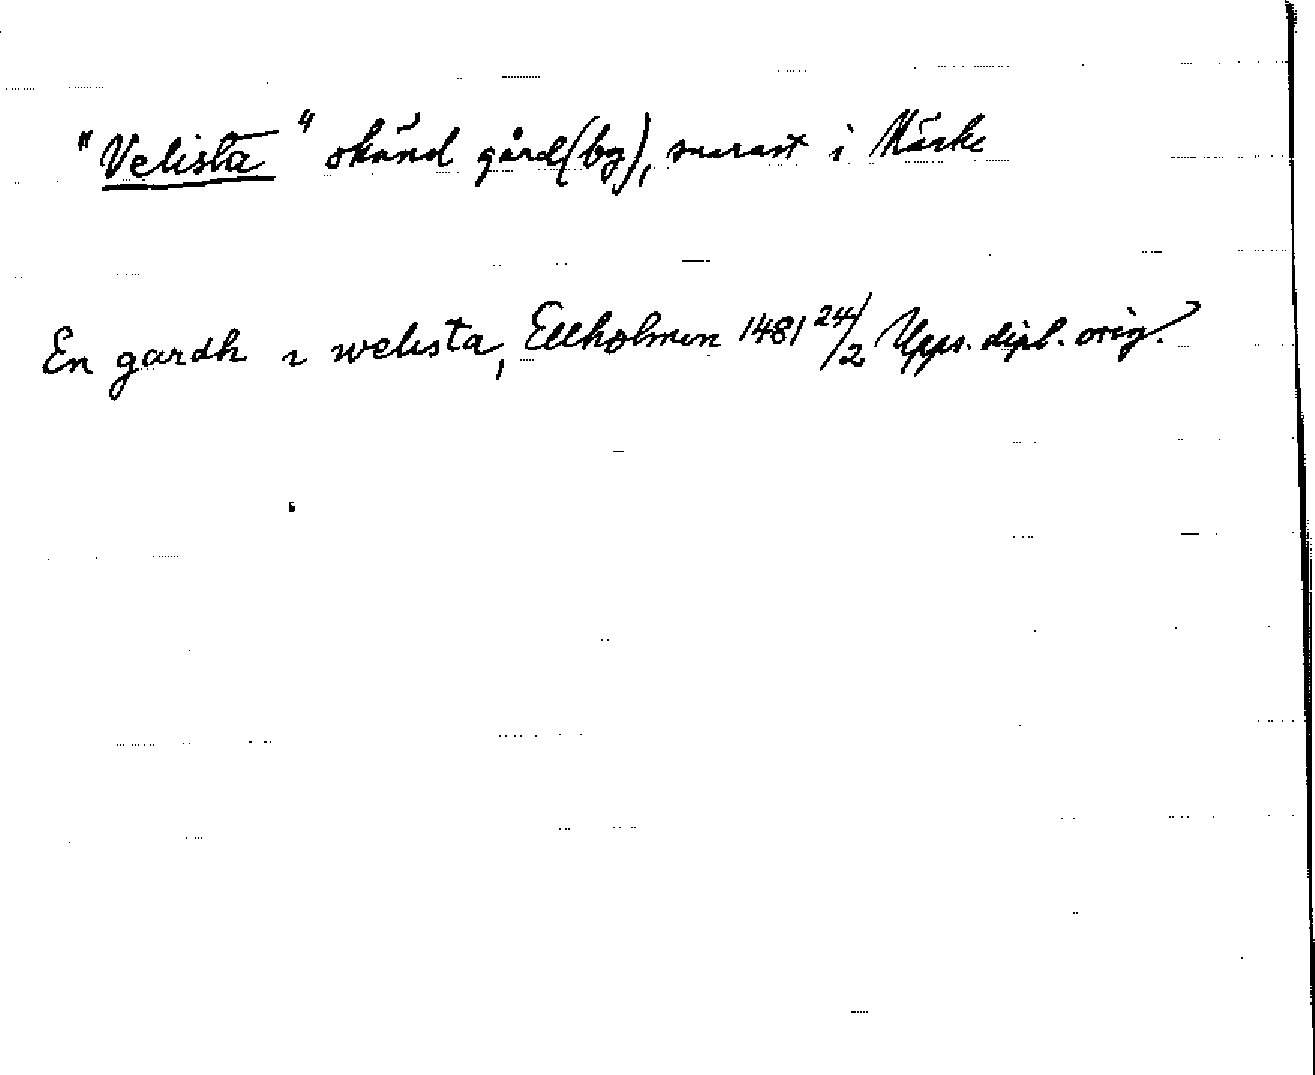 "Velista" okänd gård(by), snarast i Närke
En gardh i welista, Ekholmen 1481 24/2 Upps. dipl. orig.